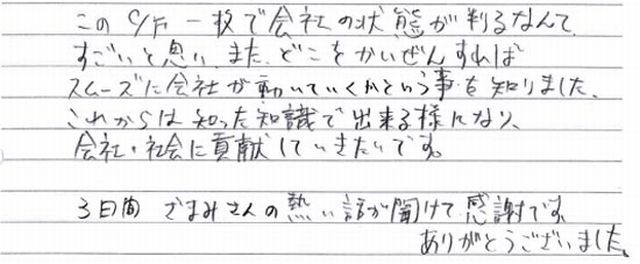 この C/F 一枚で会社の状態が判るなんて
すごいと思い、また、どこをかいぜんすれば
スムーズに会社が動いていくかという事を知りました。
これからは知った知識で出来る様になり、
会社・社会に貢献していきたいです。
3日間 ざまみさんの熱い話が聞けて感謝です。
ありがとうございました。